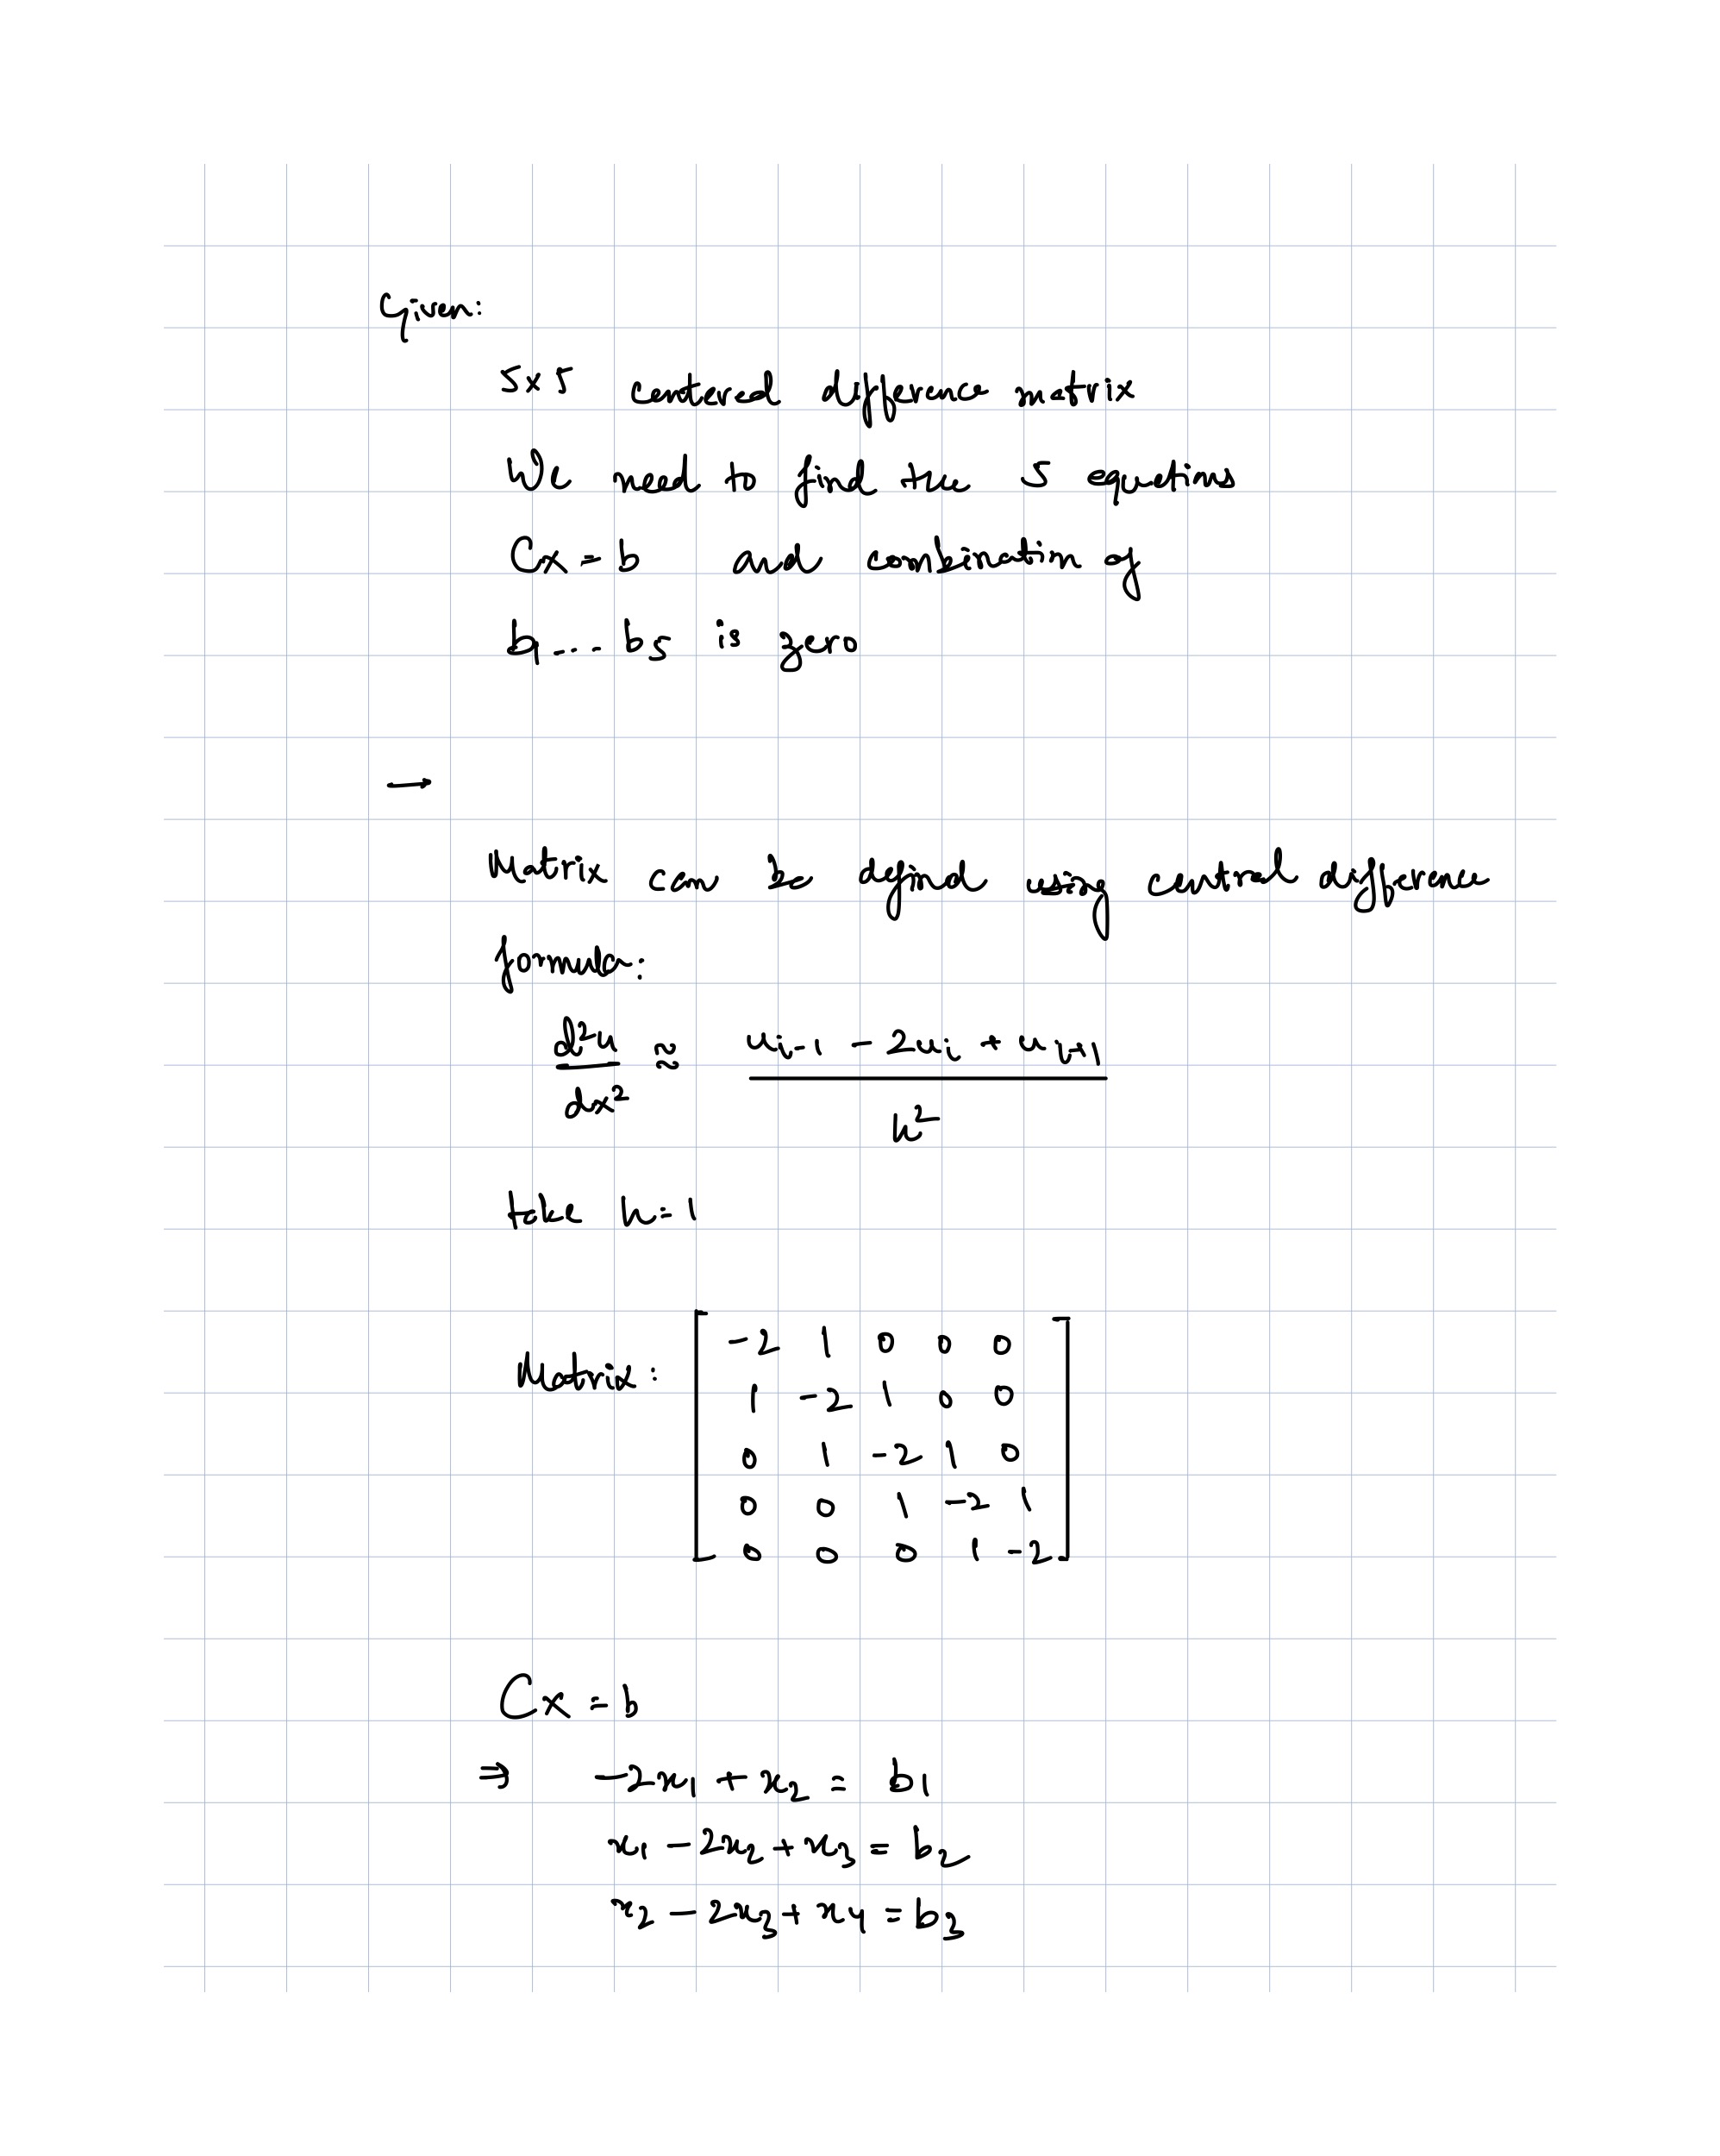 Given:
5x5 centered difference matrix
We need to find the 5 equations
Cx = b and combination of
b1... b5 is zero
→
Matrix can be defined using central difference
formula:
d²u/dx² ≈ (u_{i-1} - 2u_i + u_{i+1}) / h²
take h=1
Matrix: [
-2 1 0 0 0
1 -2 1 0 0
0 1 -2 1 0
0 0 1 -2 1
0 0 0 1 -2
]
Cx = b
⇒ -2x₁ + x₂ = b₁
x₁ - 2x₂ + x₃ = b₂
x₂ - 2x₃ + x₄ = b₃